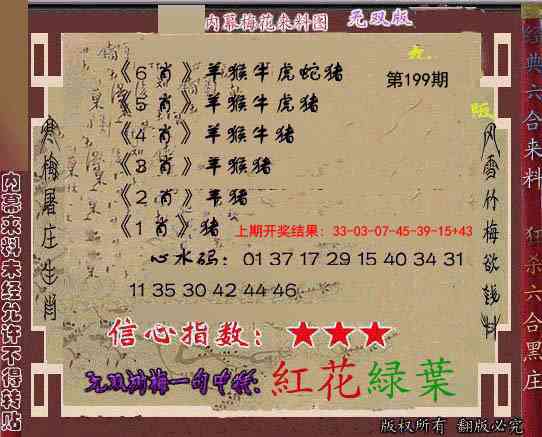 内幕梅花来料图 无双版
《6肖》羊猴牛虎蛇猪
第199期
《5肖》羊猴牛虎猪
《4肖》羊猴牛猪
《3肖》羊猴猪
《2肖》羊猪
《1肖》猪
上期开奖结果：33-03-07-45-39-15+43
心水码：01 37 17 29 15 40 34 31
11 35 30 42 44 46
信心指数：★★★
无双鸿梅一句中特：紅花緑葉
版权所有 翻版必究
寒梅屠庄生肖
内幕来料未经允许不得转贴
风雪竹梅欲钱料
经典六合来料 狂杀六合黑庄